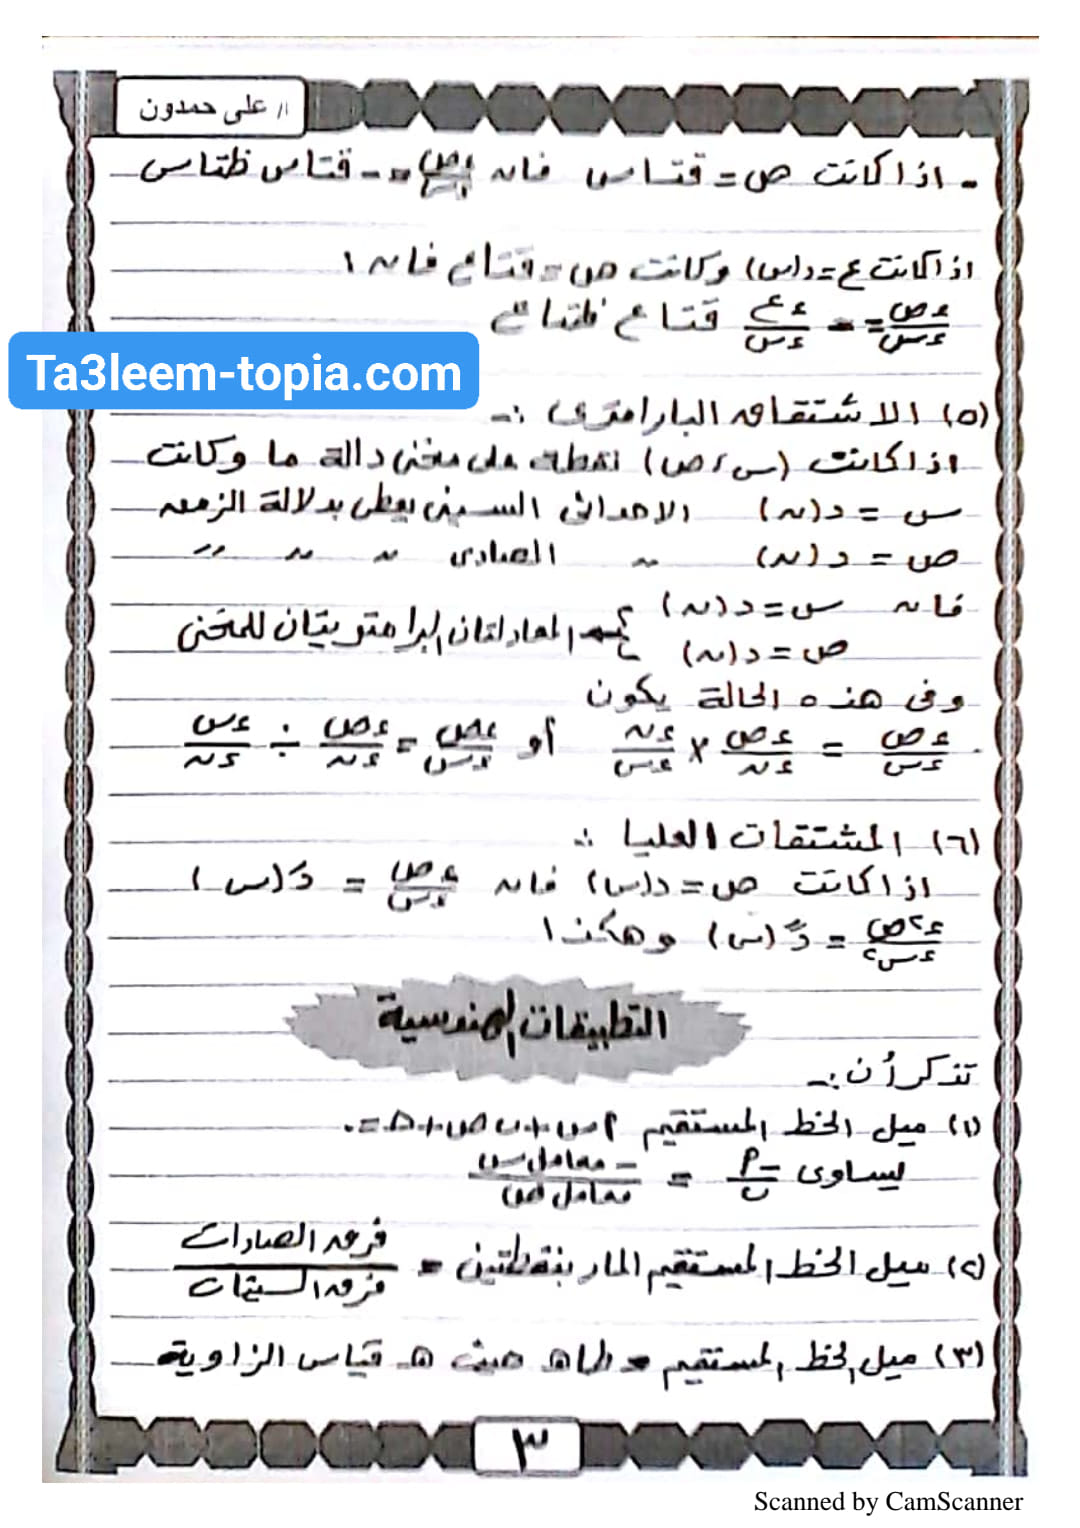 أ/ على حمدون
- اذا كانت ص = قتا س فان ءص/ءس = - قتا س ظتا س
اذا كانت ع = د(س) وكانت ص = قتا ع فان :
ءص/ءس = - ءع/ءس قتا ع ظتا ع
Ta3leem-topia.com
(٥) الاشتقاق البارامترى :-
اذا كانت (س ، ص) نقطة على منحنى دالة ما وكانت
س = د(ن) الاحداثى السينى يعطى بدلالة الزمن
ص = د(ن) " الصادى " " "
فان س = د(ن)
ص = د(ن) } ← المعادلتان البرامتريتان للمنحنى
وفى هذه الحالة يكون
ءص/ءس = ءص/ءن × ءن/ءس أو ءص/ءس = ءص/ءن ÷ ءس/ءن
(٦) المشتقات العليا :
اذا كانت ص = د(س) فان ءص/ءس = دَ(س)
ء٢ص/ءس٢ = دً(س) وهكذا
التطبيقات الهندسية
تذكر أن :-
(١) ميل الخط المستقيم ٢س + ب ص + ح = ٠
يساوى -٢/ب = - معامل س/معامل ص
(٢) ميل الخط المستقيم المار بنقطتين = فرق الصادات/فرق السينات
(٣) ميل الخط المستقيم = طاهـ حيث هـ قياس الزاوية
٣
Scanned by CamScanner